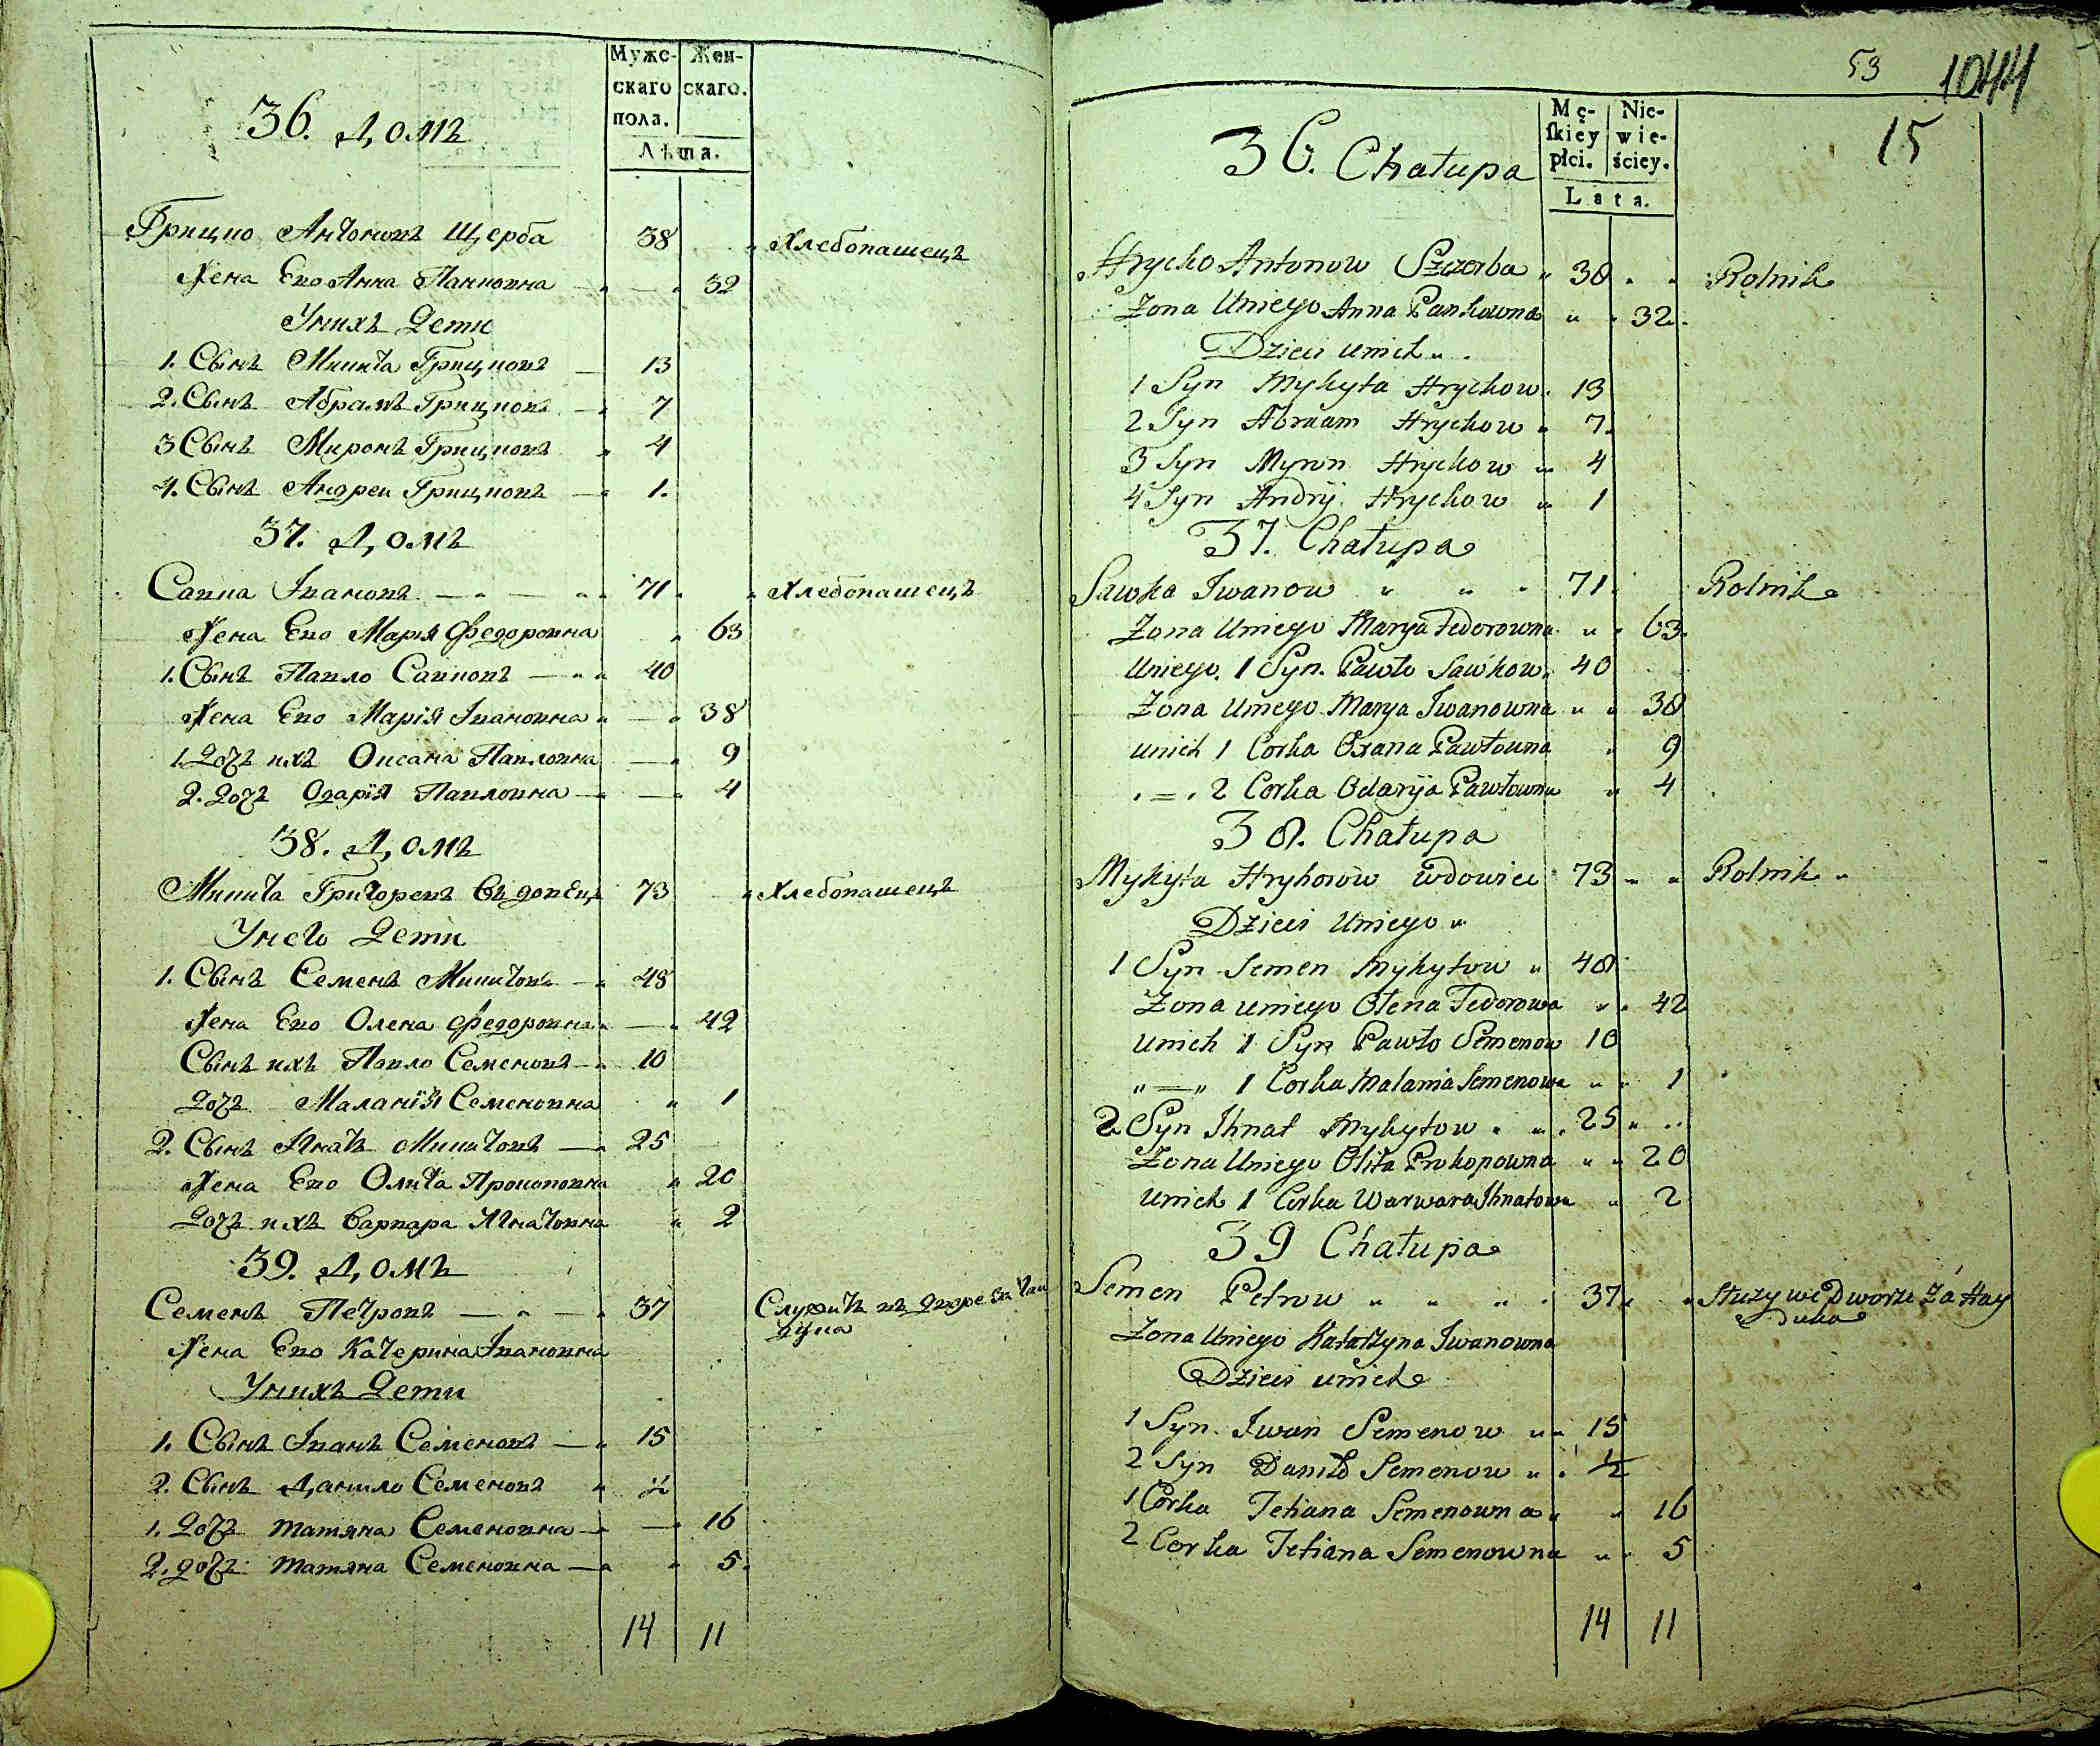 Мужс- Жен-
скаго скаго.
пола.
Лѣта.
36. Домъ
Грицко Антоновъ Щерба 38 Хлебопашецъ
Жена Его Анна Панковна 32
Унихъ Дети
1. Сынъ Микита Грицковъ 13
2. Сынъ Абрамъ Грицковъ 7
3 Сынъ Миронъ Грицковъ 4
4. Сынъ Андреи Грицковъ 1.
37. Домъ
Савка Івановъ 71 Хлебопашецъ
Жена Его Марія Федоровна 63
1. Сынъ Павло Савковъ 40
Жена Его Марія Івановна 38
1. Дочь ихъ Оксана Павловна 9
2. Дочь Одарія Павловна 4
38. Домъ
Микита Григоревъ Въдовецъ 73 Хлебопашецъ
Унего Дети
1. Сынъ Семенъ Микитовъ 48
Жена Его Олена Федоровна 42
Сынъ ихъ Павло Семеновъ 10
Дочь Маланія Семеновна 1
2. Сынъ Игнатъ Микитовъ 25
Жена Его Олита Прокоповна 20
Дочь ихъ Варвара Игнатовна 2
39. Домъ
Семенъ Петровъ 37 Служитъ въ дворе за гай
дука
Жена Его Катерина Івановна
Унихъ Дети
1. Сынъ Іванъ Семеновъ 15
2. Сынъ Данило Семеновъ ½
1. Дочь Татяна Семеновна 16
2. дочь Татяна Семеновна 5.
14 11
53 1044
15
Mę- Nie-
skiey wie-
płci. ściey.
Lata.
36. Chałupa
Hrycko Antonow Szczerba 38 Rolnik
Żona Uniego Anna Pankowna 32
Dzieci unich
1 Syn Mykyta Hryckow 13
2 Syn Abraam Hryckow 7
3 Syn Myron Hryckow 4
4 Syn Andrij Hryckow 1
37. Chałupa
Sawka Iwanow 71 Rolnik
Żona Uniego Marya Fedorowna 63
Uniego 1 Syn. Pawło Sawkow 40
Żona Uniego Marya Iwanowna 38
unich 1 Corka Oxana Pawłowna 9
„ = „ 2 Corka Odaryja Pawłowna 4
38. Chałupa
Mykyta Hryhorow wdowiec 73 Rolnik
Dzieci Uniego
1 Syn Semen Mykytow 48
Żona uniego Ołena Fedorowa 42
unich 1 Syn Pawło Semenow 10
„ = „ 1 Corka Malania Semenowa 1
2 Syn Ihnat Mykytow 25
Żona Uniego Olita Prokopowna 20
Unich 1 Corka Warwara Ihnatowa 2
39 Chałupa
Semen Petrow 37 Służy we Dworze Za Hay
duka
Żona Uniego Katarzyna Iwanowna
Dzieci unich
1 Syn Iwan Semenow 15
2 Syn Daniło Semenow ½
1 Corka Tetiana Semenowna 16
2 Corka Tetiana Semenowna 5
14 11